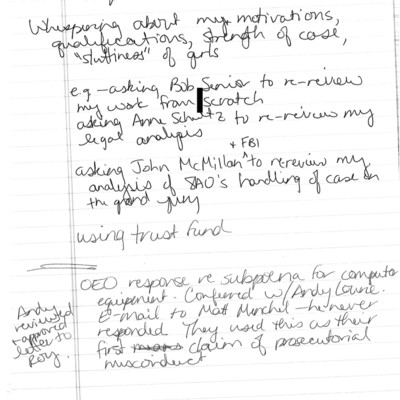 Whispering about my motivations,
qualifications, strength of case,
"sluttiness" of girls
e.g. - asking Bob Senior to re-review
my work from scratch
asking Anne Schultz to re-review my
legal analysis
+ FBI
asking John McMillan ^ to re-review my
analysis of SAO's handling of case in
the grand jury
using trust fund
OEO response re subpoena for computer
equipment. Conferred w/ Andy Lourie.
E-mail to Matt - he never
responded. They used this as their
first claim of prosecutorial
misconduct
Andy
reviewed
+ approved
letter to
Roy.